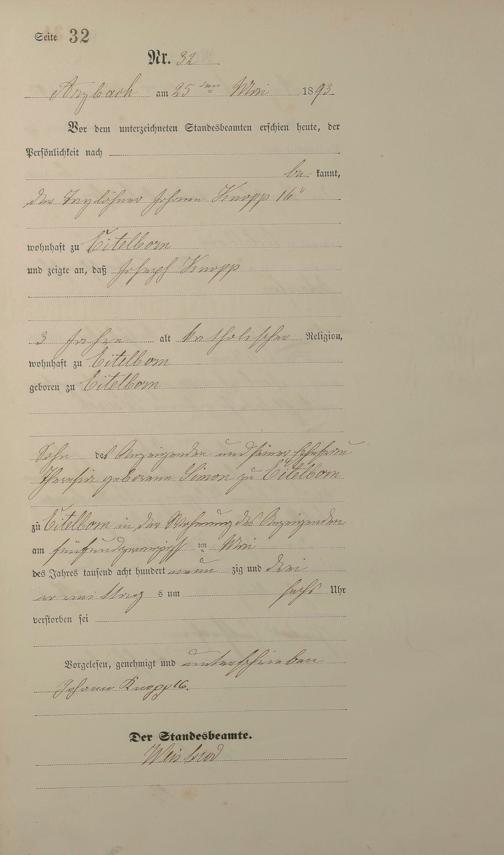 Seite 32
Nr. 32
Arzbach am 25ten Mai 1893.
Vor dem unterzeichneten Standesbeamten erschien heute, der
Persönlichkeit nach
bekannt,
der Taglöhner Johann Knopp 16r
wohnhaft zu Eitelborn
und zeigte an, daß Joseph Knopp
3 Jahre alt katholischer Religion,
wohnhaft zu Eitelborn
geboren zu Eitelborn
Sohn des Anzeigenden und seiner Ehefrau
Theresia geborene Simon zu Eitelborn
zu Eitelborn in der Wohnung des Anzeigenden
am fünfundzwanzigsten Mai
des Jahres tausend acht hundert neun zig und drei
mittags um sechs Uhr
verstorben sei
Vorgelesen, genehmigt und unterschrieben
Johann Knopp 16.
Der Standesbeamte.
Weisbrod